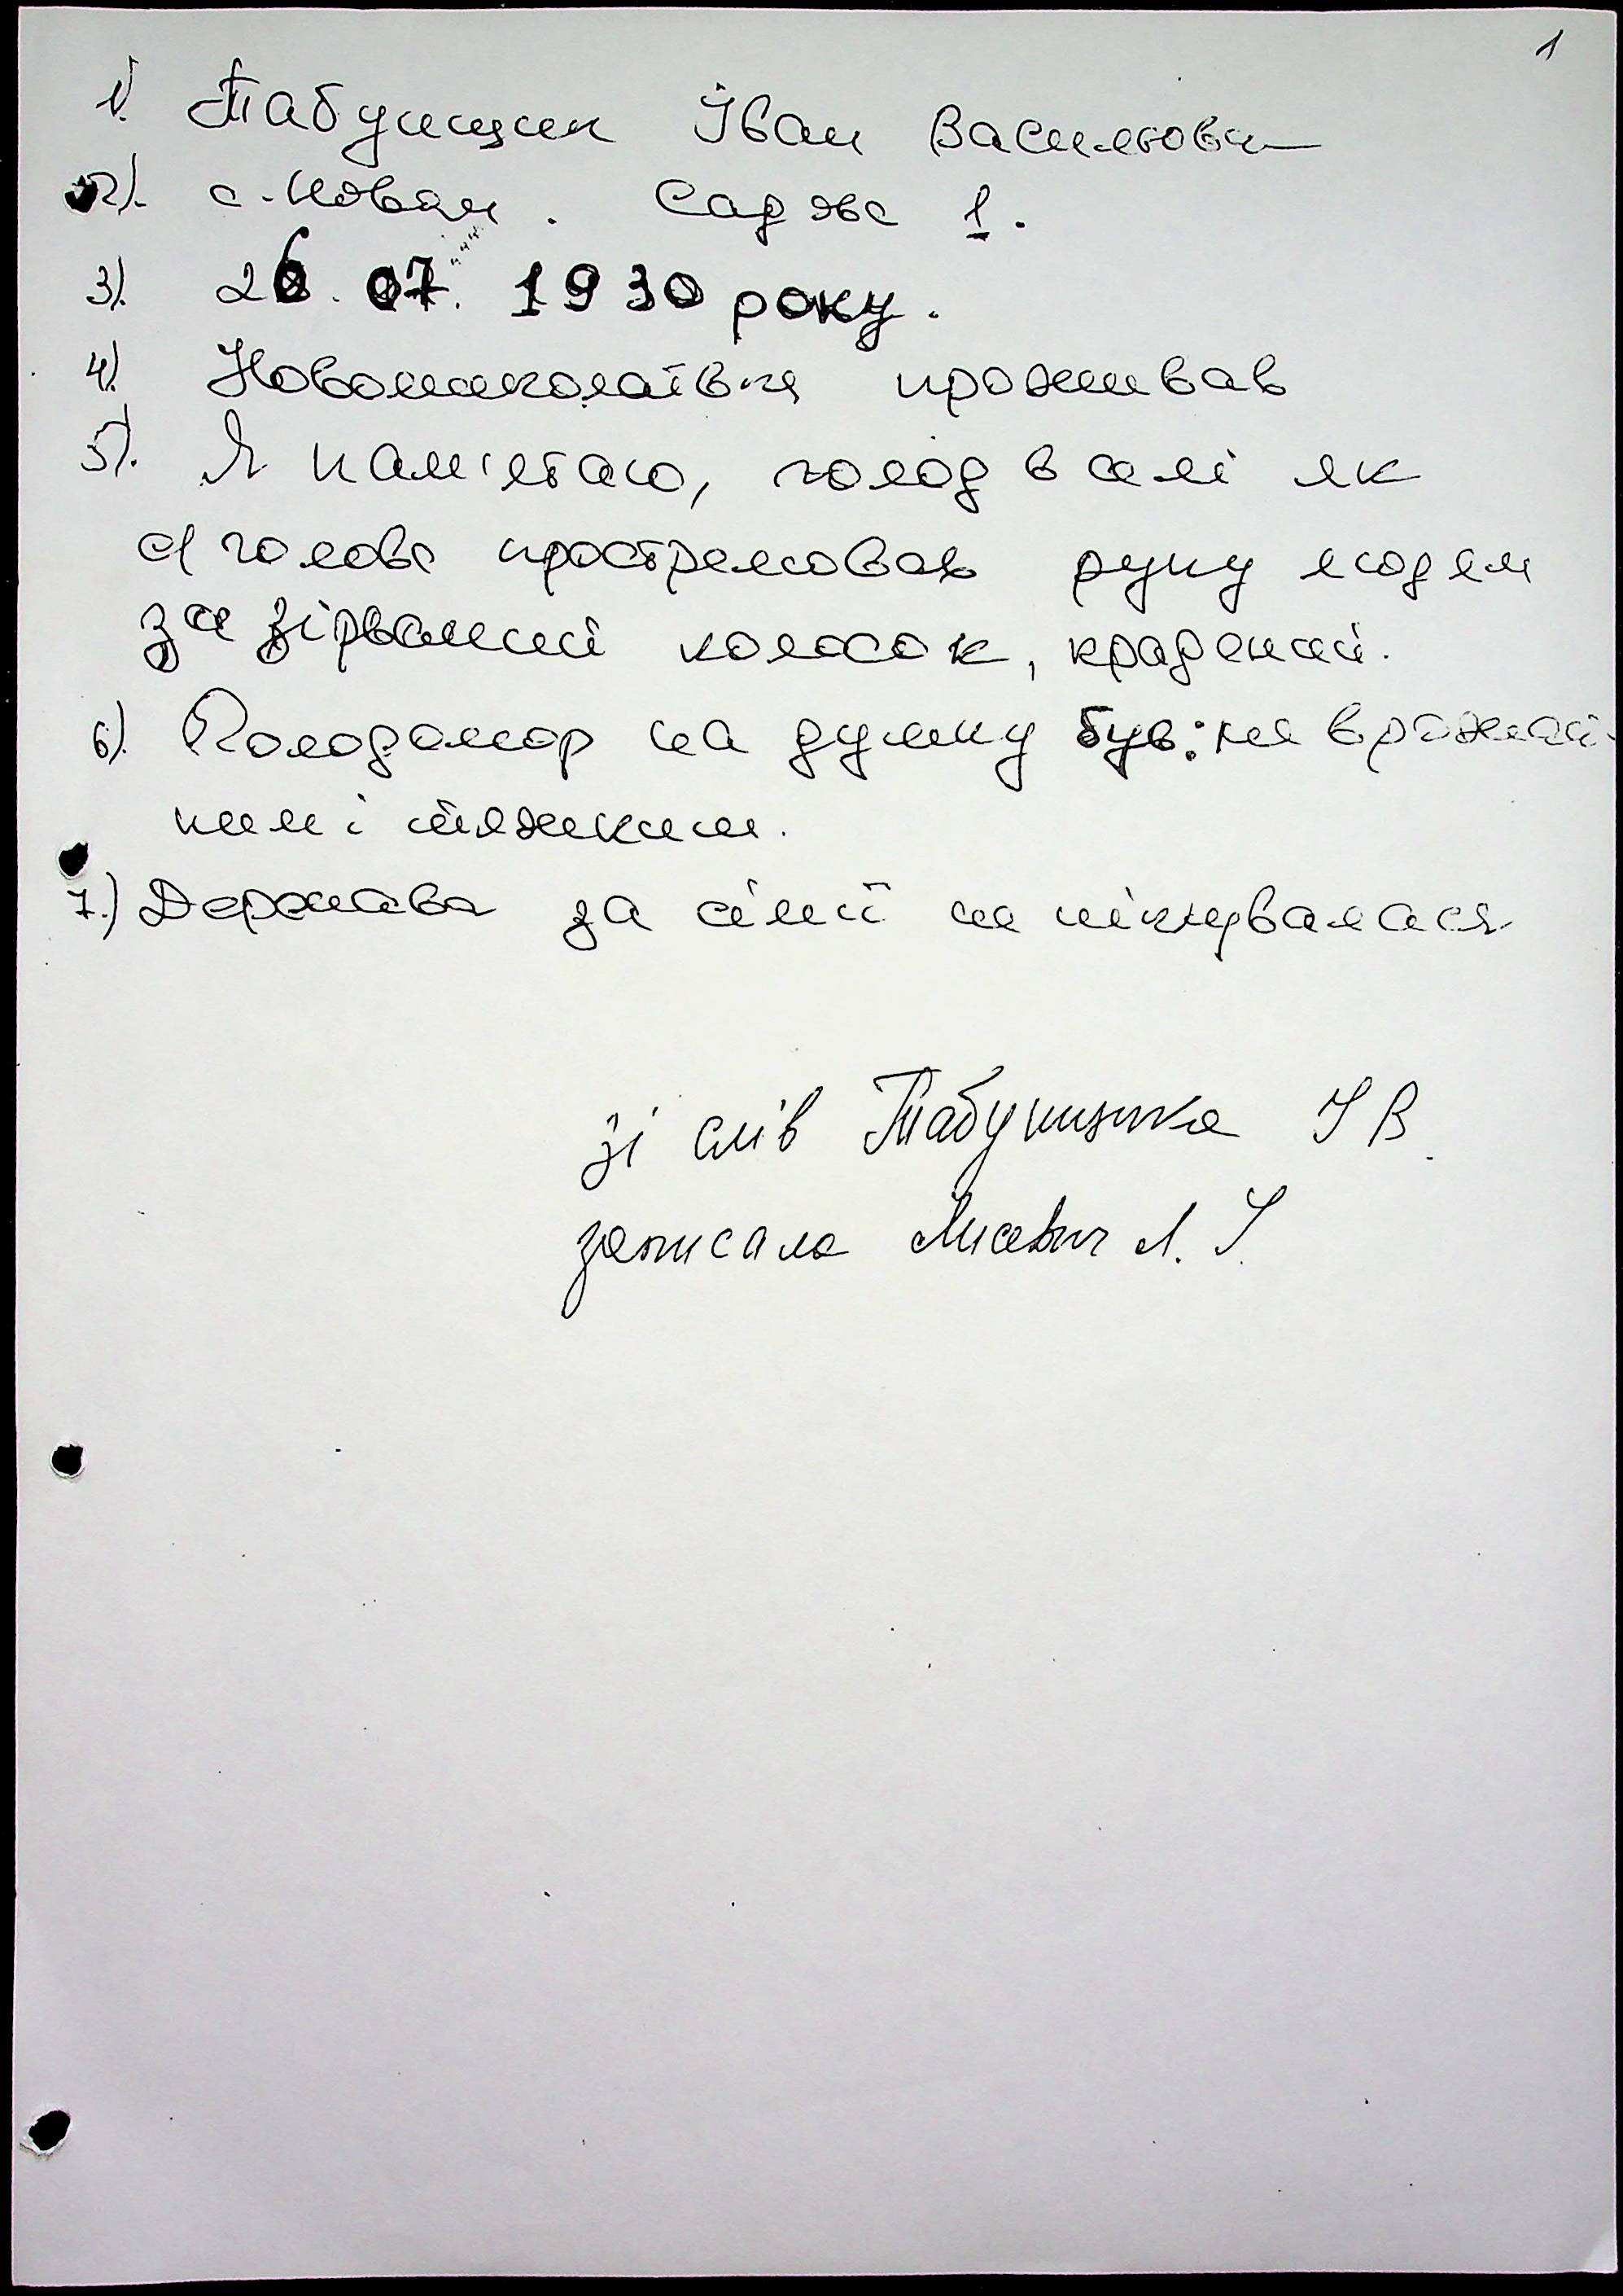 1
1). Табунщик Іван Васильович
2). с. Новомик. Садова 1.
3). 26. 07. 1930 року.
4). Новомиколаївка проживав
5). Я пам'ятаю, голод в селі як
голова прострелював руку людям
за зірваний колосок, крадений.
6). Голодомор на думку був: не врожай-
ним і тяжким.
7.) Держава за сім'ї не піклувалася
зі слів Табунщика І В.
записала Лисевич Л. І.